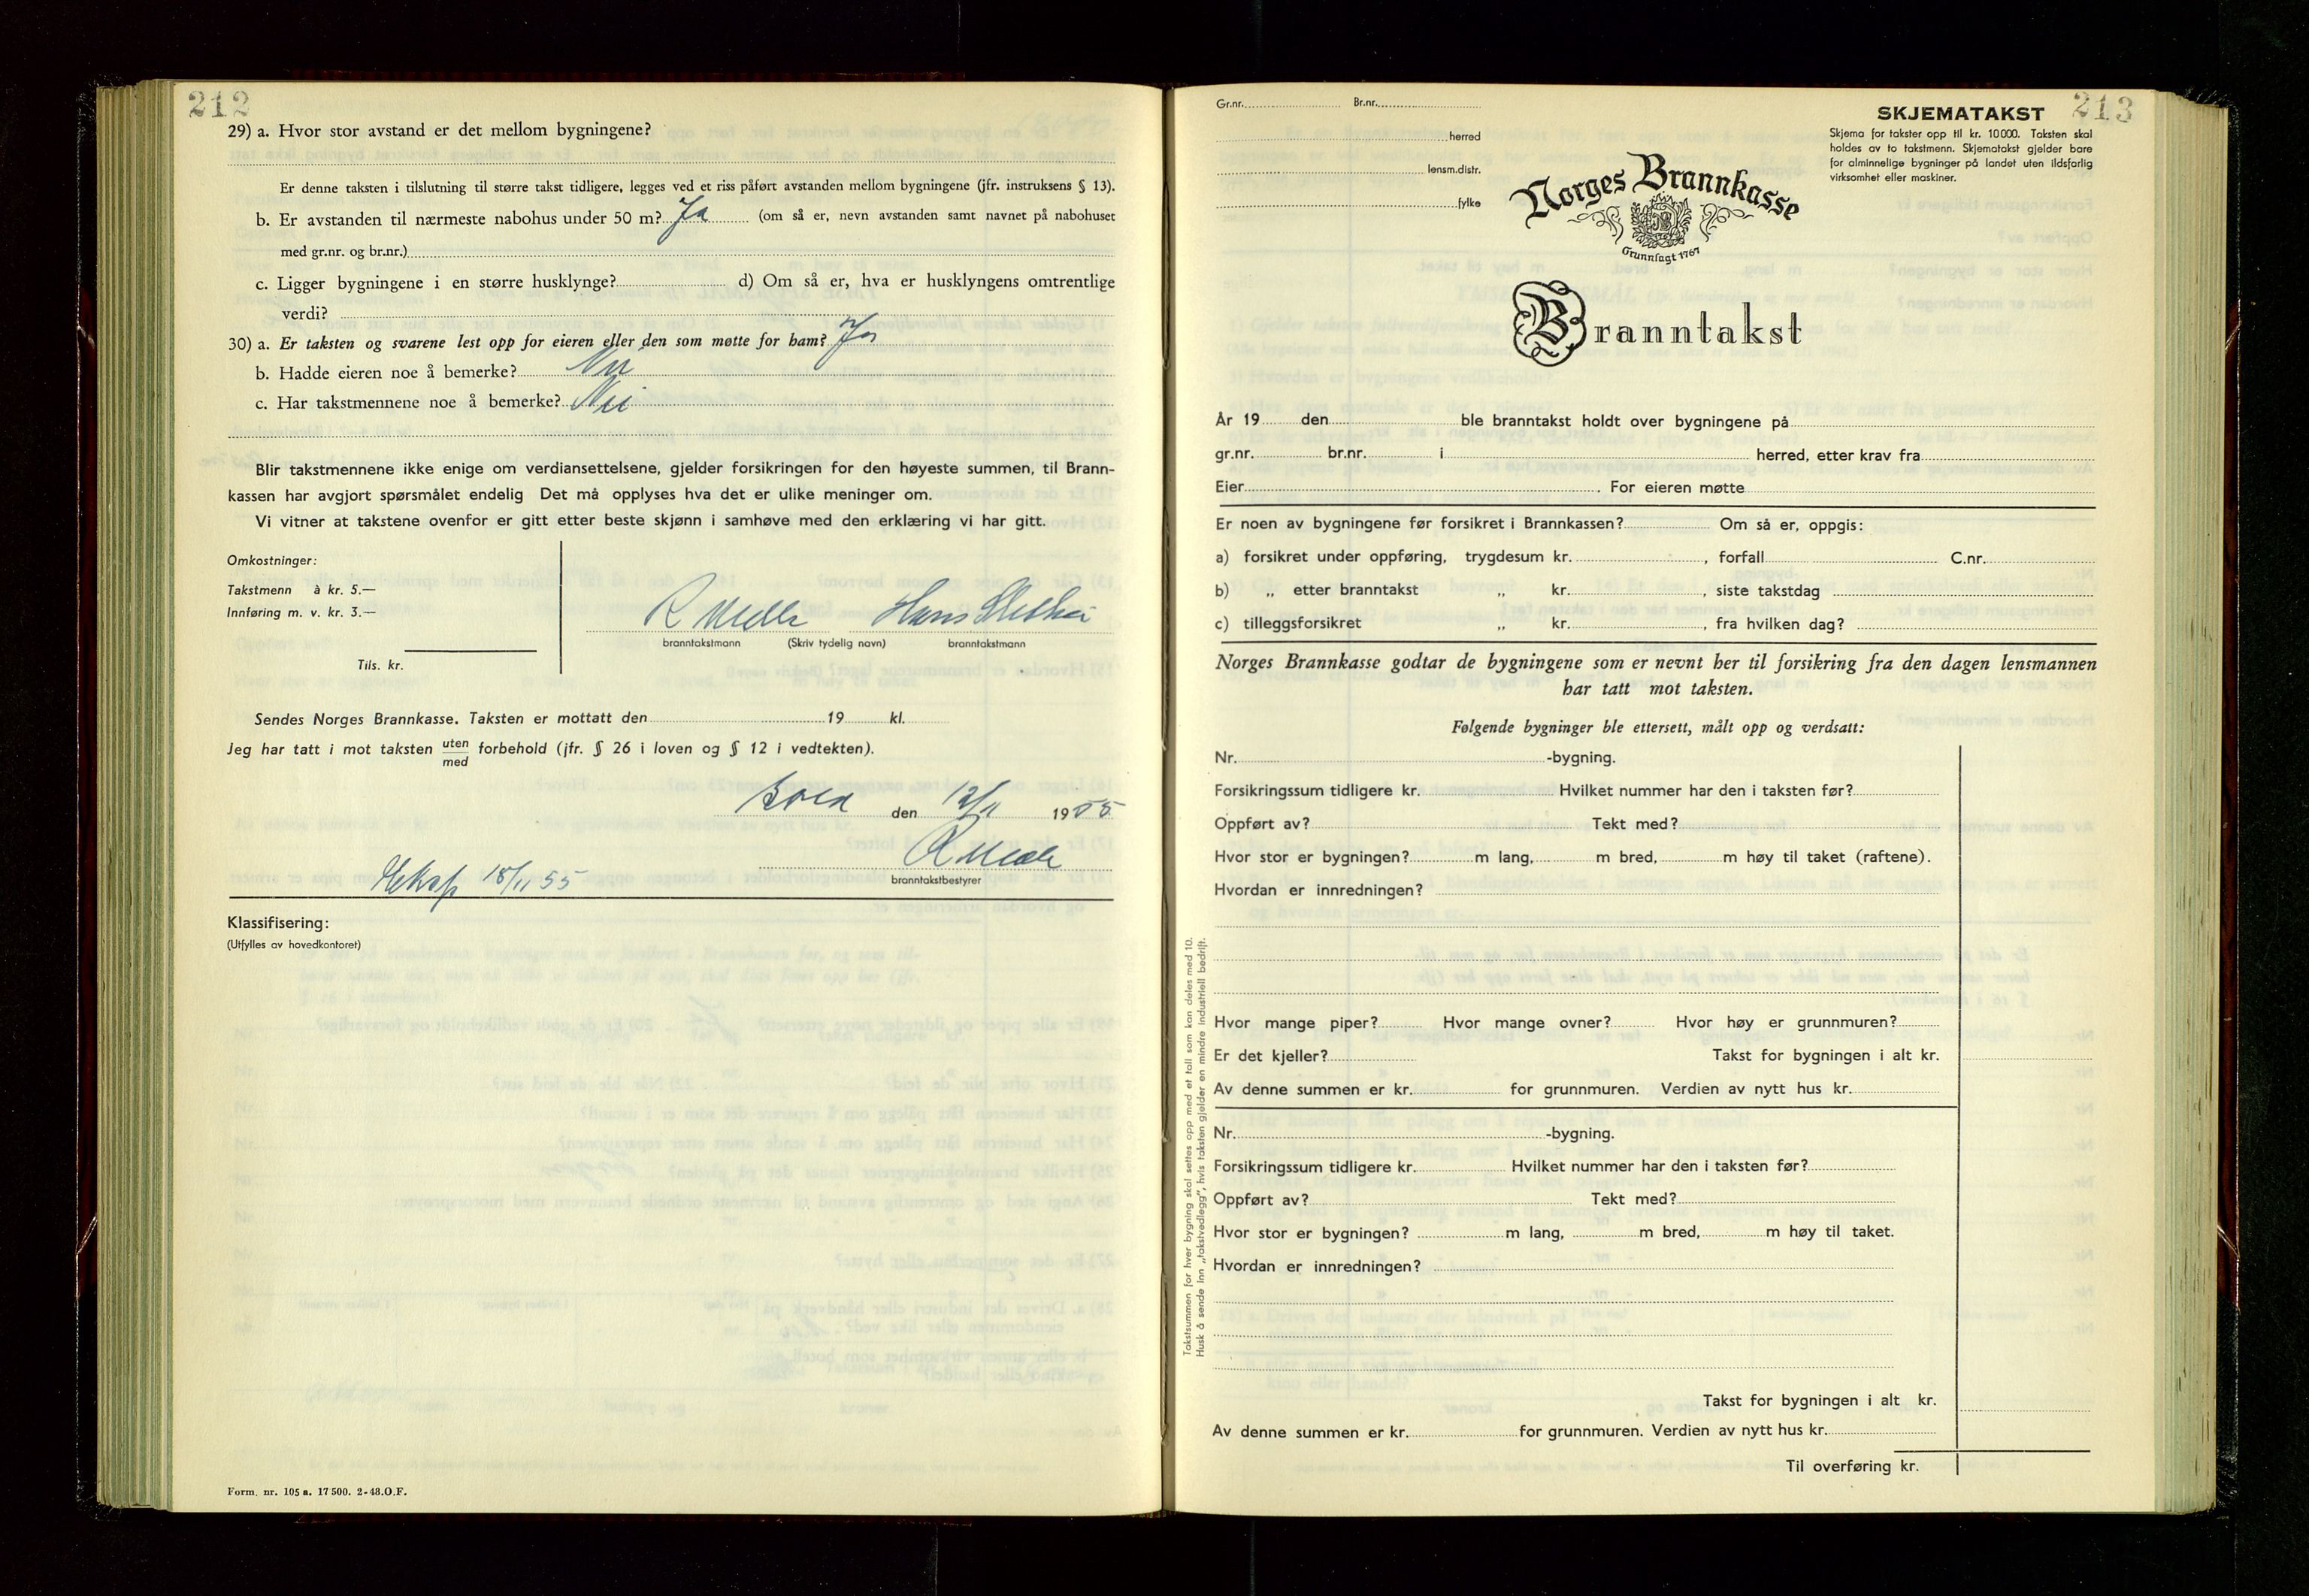 212
29) a. Hvor stor avstand er det mellom bygningene?
Er denne taksten i tilslutning til større takst tidligere, legges ved et riss påført avstanden mellom bygningene (jfr. instruksens § 13).
b. Er avstanden til nærmeste nabohus under 50 m? Ja (om så er, nevn avstanden samt navnet på nabohuset
med gr.nr. og br.nr.)
c. Ligger bygningene i en større husklynge? d) Om så er, hva er husklyngens omtrentlige
verdi?
30) a. Er taksten og svarene lest opp for eieren eller den som møtte for ham? Ja
b. Hadde eieren noe å bemerke? Nei
c. Har takstmennene noe å bemerke? Nei
Blir takstmennene ikke enige om verdiansettelsene, gjelder forsikringen for den høyeste summen, til Brann-
kassen har avgjort spørsmålet endelig Det må opplyses hva det er ulike meninger om.
Vi vitner at takstene ovenfor er gitt etter beste skjønn i samhøve med den erklæring vi har gitt.
Omkostninger:
Takstmenn à kr. 5.—
Innføring m. v. kr. 3.—
Tils. kr.
R Hans
branntakstmann (Skriv tydelig navn) branntakstmann
Sendes Norges Brannkasse. Taksten er mottatt den 19 kl.
Jeg har tatt i mot taksten uten forbehold (jfr. § 26 i loven og § 12 i vedtekten).
med
den 12/11 1955
R
branntakstbestyrer
18/11 55
Klassifisering:
(Utfylles av hovedkontoret)
Form. nr. 105 a. 17 500. 2-48.O.F.
213
Gr.nr. Br.nr.
herred
lensm.distr.
fylke
SKJEMATAKST
Skjema for takster opp til kr. 10 000. Taksten skal
holdes av to takstmenn. Skjematakst gjelder bare
for alminnelige bygninger på landet uten ildsfarlig
virksomhet eller maskiner.
Norges Brannkasse
Grunnlagt 1767
Branntakst
År 19 den ble branntakst holdt over bygningene på
gr.nr. br.nr. i herred, etter krav fra
Eier. For eieren møtte
Er noen av bygningene før forsikret i Brannkassen? Om så er, oppgis:
a) forsikret under oppføring, trygdesum kr. , forfall C.nr.
b) „ etter branntakst „ kr. , siste takstdag
c) tilleggsforsikret „ kr. , fra hvilken dag?
Norges Brannkasse godtar de bygningene som er nevnt her til forsikring fra den dagen lensmannen
har tatt mot taksten.
Følgende bygninger ble ettersett, målt opp og verdsatt:
Nr. -bygning.
Forsikringssum tidligere kr. Hvilket nummer har den i taksten før?
Oppført av? Tekt med?
Hvor stor er bygningen? m lang, m bred, m høy til taket (raftene).
Hvordan er innredningen?
Hvor mange piper? Hvor mange ovner? Hvor høy er grunnmuren?
Er det kjeller? Takst for bygningen i alt kr.
Av denne summen er kr. for grunnmuren. Verdien av nytt hus kr.
Nr. -bygning.
Forsikringssum tidligere kr. Hvilket nummer har den i taksten før?
Oppført av? Tekt med?
Hvor stor er bygningen? m lang, m bred, m høy til taket.
Hvordan er innredningen?
Takst for bygningen i alt kr.
Av denne summen er kr. for grunnmuren. Verdien av nytt hus kr.
Til overføring kr.
Takstsummen for hver bygning skal settes opp med et tall som kan deles med 10.
Husk å sende inn „takstvedlegg”, hvis taksten gjelder en mindre industriell bedrift.